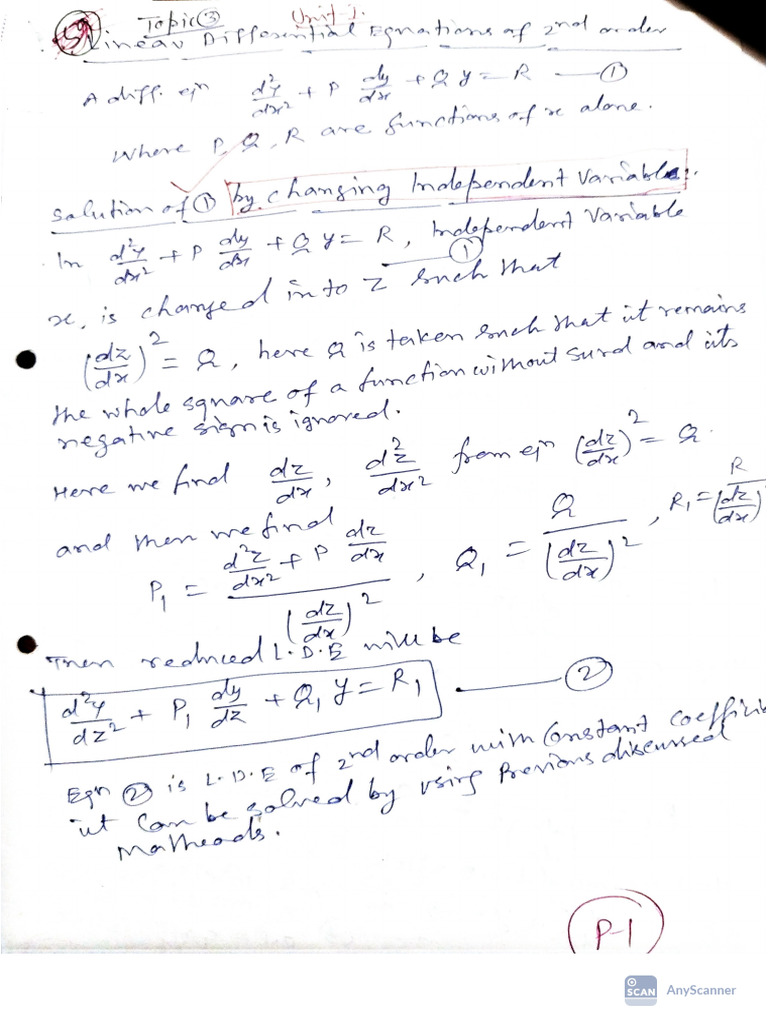 Topic ③ Unit-1.
Linear Differential Equations of 2nd order
A diff. eqn d²y/dx² + P dy/dx + Q y = R — ①
Where P, Q, R are functions of x alone.
Solution of ① by changing Independent Variable:
In d²y/dx² + P dy/dx + Q y = R, Independent Variable
— ①
x, is changed in to z such that
(dz/dx)² = Q, here Q is taken such that it remains
the whole square of a function without surd and its
negative sign is ignored.
Here we find dz/dx, d²z/dx² from eqn (dz/dx)² = Q.
and then we find
P₁ = (d²z/dx² + P dz/dx)/(dz/dx)², Q₁ = Q/(dz/dx)², R₁ = R/(dz/dx)
Then reduced L.D.E will be
d²y/dz² + P₁ dy/dz + Q₁ y = R₁ — ②
Eqn ② is L.D.E of 2nd order with Constant Coeffici
it can be solved by using Previous discussed
Matheods.
P-1
SCAN AnyScanner